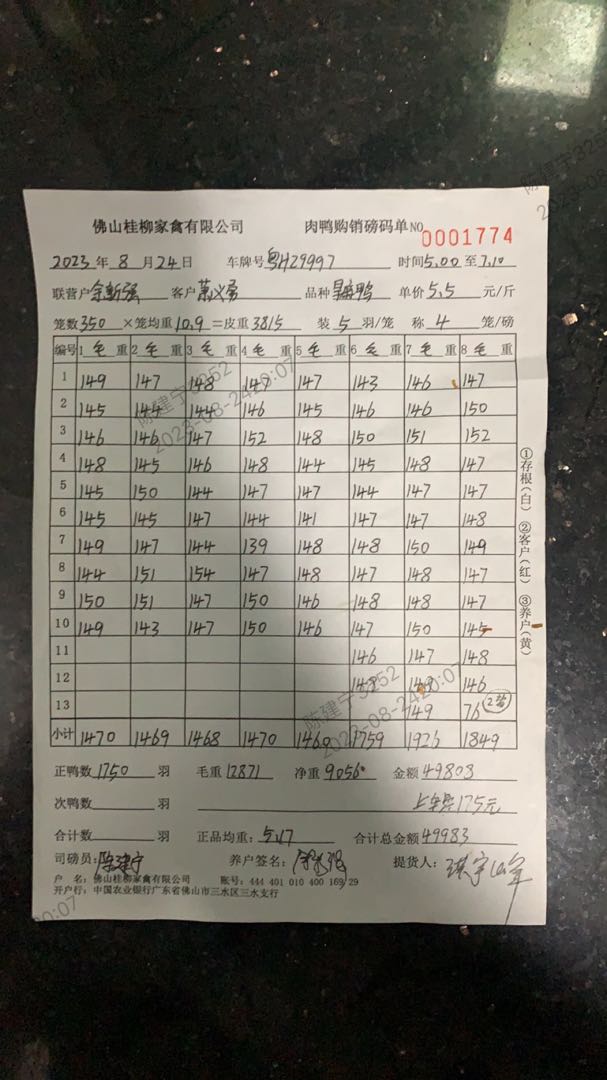 佛山桂柳家禽有限公司 肉鸭购销磅码单NO 0001774
2023年 8 月 24 日 车牌号 粤H29997 时间 5.00 至 7.10
联营户 客户 品种 鸭 单价 5.5 元/斤
笼数 350 ×笼均重 10.9 =皮重 3815 装 5 羽/笼 称 4 笼/磅
编号 1 毛 重 2 毛 重 3 毛 重 4 毛 重 5 毛 重 6 毛 重 7 毛 重 8 毛 重
1 149 147 148 147 147 143 146 147
2 145 144 144 146 145 146 146 150
3 146 146 147 152 148 150 151 152
4 148 145 146 148 144 145 148 147
5 145 150 144 147 147 144 147 147
6 145 145 147 144 141 147 147 148
7 149 147 144 139 148 148 150 149
8 144 151 154 147 148 147 148 147
9 150 151 147 150 146 148 148 147
10 149 143 147 150 146 147 150 145
11 146 147 148
12 146
13 149 76 2笼
小计 1470 1469 1468 1470 1460 1759 1926 1849
正鸭数 1750 羽 毛重 12871 净重 9056 金额 49808
次鸭数 羽 175元
合计数 羽 正品均重: 5.17 合计总金额 49983
司磅员: 陈建宁 养户签名: 提货人:
户 名: 佛山桂柳家禽有限公司 账号: 444 401 010 400 169 29
开户行: 中国农业银行广东省佛山市三水区三水支行
①存根(白) ②客户(红) ③养户(黄)
陈建宁3252
2023-08-24 20:07